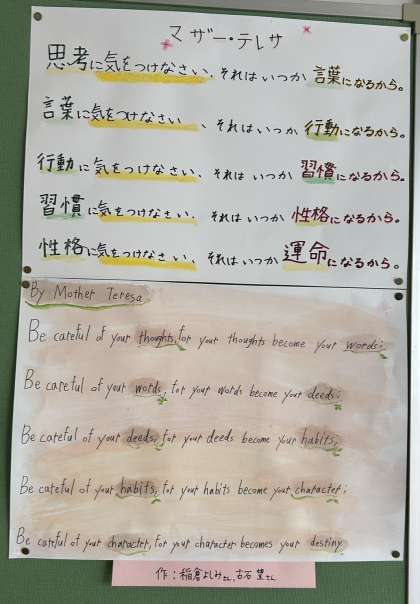 マザー・テレサ
思考に気をつけなさい、それはいつか言葉になるから。
言葉に気をつけなさい、それはいつか行動になるから。
行動に気をつけなさい、それはいつか習慣になるから。
習慣に気をつけなさい、それはいつか性格になるから。
性格に気をつけなさい、それはいつか運命になるから。
By Mother Teresa
Be careful of your thoughts, for your thoughts become your words;
Be careful of your words, for your words become your deeds;
Be careful of your deeds, for your deeds become your habits;
Be careful of your habits, for your habits become your character;
Be careful of your character, for your character becomes your destiny.
作:稲倉よしみさん、古石望さん